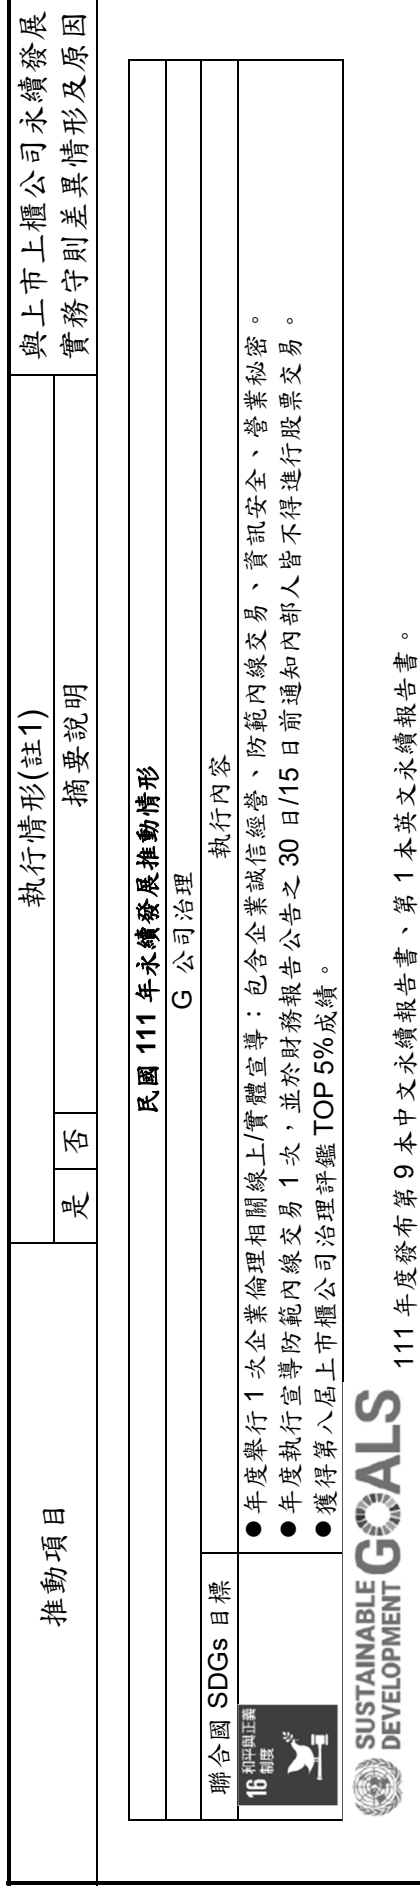 推動項目
執行情形(註1)
與上市上櫃公司永續發展
實務守則差異情形及原因
是
否
摘要說明
民國 111 年永續發展推動情形
G 公司治理
聯合國 SDGs 目標
執行內容
16 和平與正義
制度
●年度舉行 1 次企業倫理相關線上/實體宣導：包含企業誠信經營、防範內線交易、資訊安全、營業秘密。
●年度執行宣導防範內線交易 1 次，並於財務報告公告之 30 日/15 日前通知內部人皆不得進行股票交易。
●獲得第八屆上市櫃公司治理評鑑 TOP 5%成績。
SUSTAINABLE
DEVELOPMENT GOALS
111 年度發布第 9 本中文永續報告書、第 1 本英文永續報告書。